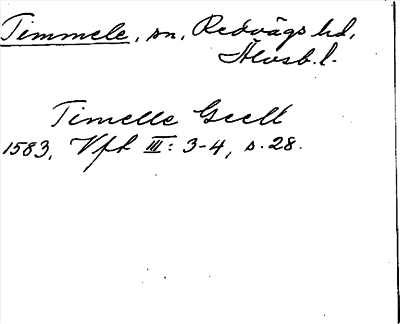 Timmele, sn, Redvägs hd,
Älvsb. l.
Timelle Geelt
1583, Vfh III: 3-4, s. 28.